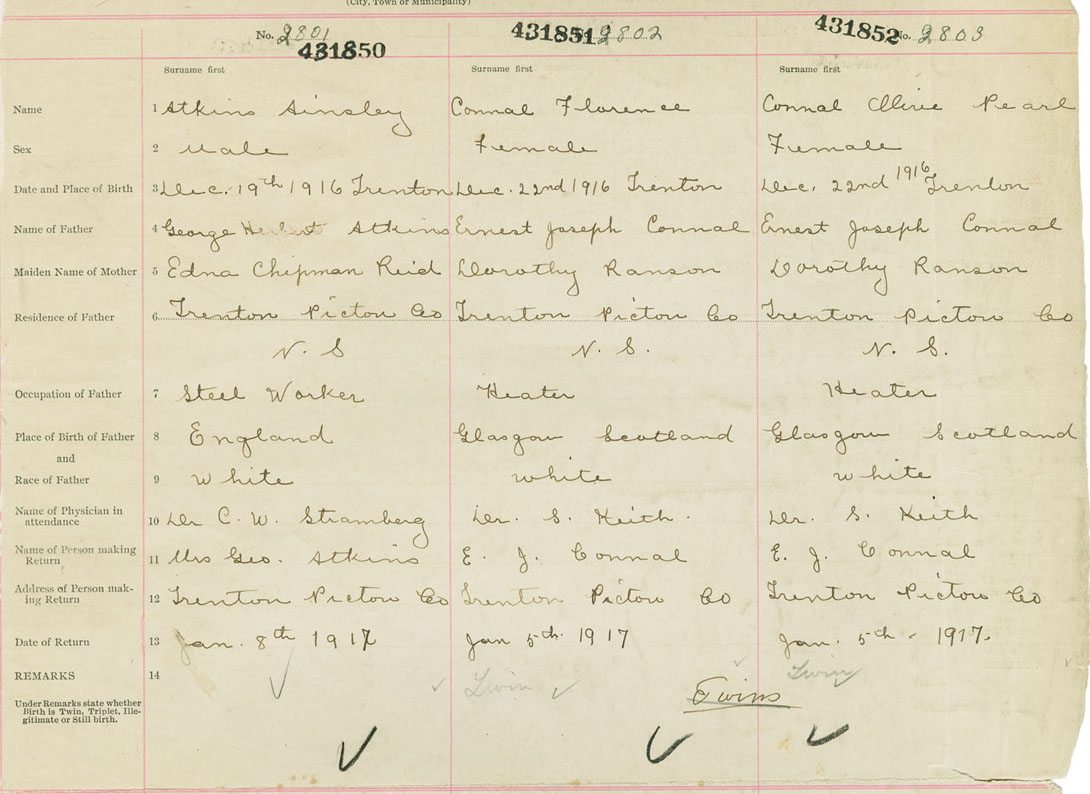 (City, Town or Municipality)
No. 2801 431850
431851 2802
431852 No. 2803
Surname first Surname first Surname first
Name 1 Atkins Ainsley Connal Florence Connal Olive Pearl
Sex 2 Male Female Female
Date and Place of Birth 3 Dec. 19th 1916 Trenton Dec. 22nd 1916 Trenton Dec. 22nd 1916 Trenton
Name of Father 4 George Herbert Atkins Ernest Joseph Connal Ernest Joseph Connal
Maiden Name of Mother 5 Edna Chipman Reid Dorothy Ranson Dorothy Ranson
Residence of Father 6 Trenton Pictou Co Trenton Pictou Co Trenton Pictou Co
N. S N. S. N. S.
Occupation of Father 7 Steel Worker Heater Heater
Place of Birth of Father 8 England Glasgow Scotland Glasgow Scotland
and
Race of Father 9 White white white
Name of Physician in
attendance 10 Dr C. W. Stramberg Dr. S. Keith. Dr. S. Keith
Name of Person making
Return 11 Mrs Geo. Atkins E. J. Connal E. J. Connal
Address of Person mak-
ing Return 12 Trenton Pictou Co Trenton Pictou Co Trenton Pictou Co
Date of Return 13 Jan. 8th 1917 Jan 5th 1917 Jan. 5th. 1917.
REMARKS 14 Twin Twin
Twins
Under Remarks state whether
Birth is Twin, Triplet, Ille-
gitimate or Still birth.